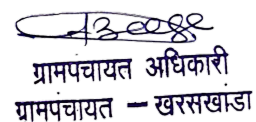 ग्रामपंचायत अधिकारी
ग्रामपंचायत – खरसखांडा